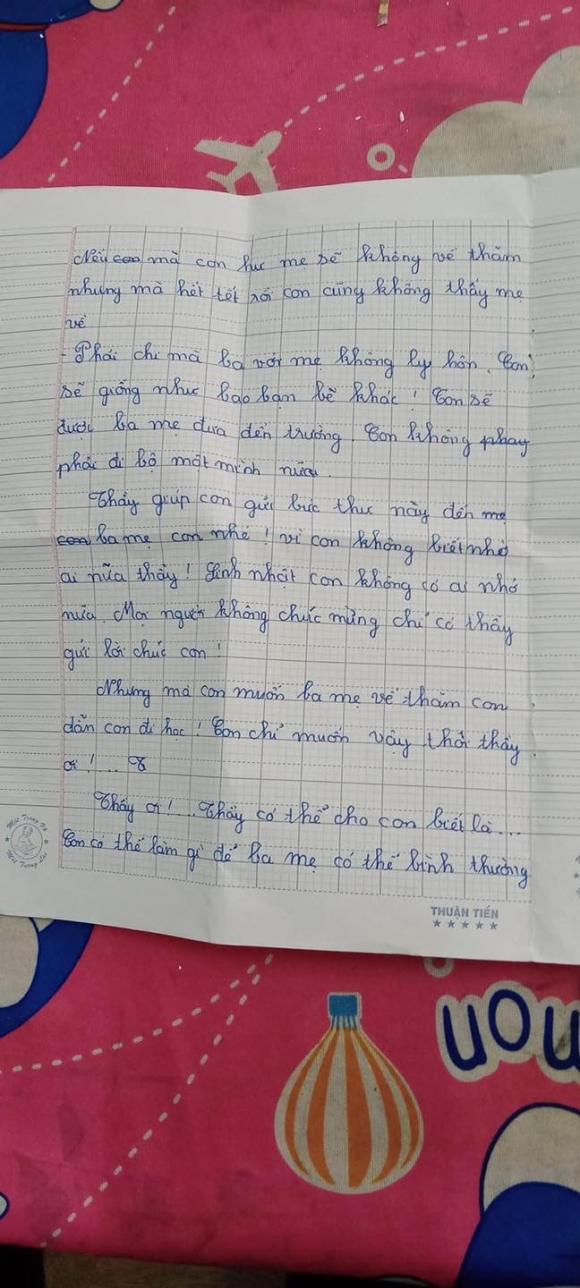 Nếu con mà con hư mẹ sẽ không về thăm
nhưng mà hết tết rồi con cũng không thấy mẹ
về
- Phải chi mà ba với mẹ không ly hôn. Con
sẽ giống như bao bạn bè khác! Con sẽ
được ba mẹ đưa đến trường. Con không phay
phải đi bộ một mình nữa.
Thầy giúp con gửi bức thư này đến mẹ
con ba mẹ con nhé! vì con không biết nhờ
ai nữa thầy! Sinh nhật con không có ai nhớ
nữa. Mọi người không chúc mừng chỉ có thầy
gửi lời chúc con!
Nhưng mà con muốn ba mẹ về thăm con
dẫn con đi học! Con chỉ muốn vậy thôi thầy
ơi!...
Thầy ơi!... Thầy có thể cho con biết là...
Con có thể làm gì để ba mẹ có thể bình thường
THUẬN TIẾN
non